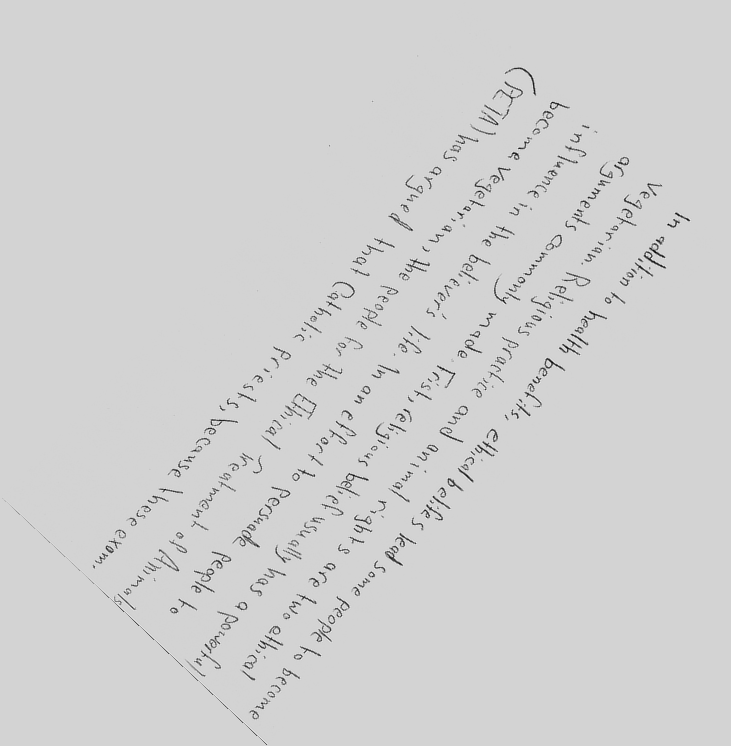 In addition to health benefits, ethical belifes lead some people to become
vegetarian. Religious practice and animal rights are two ethical
arguments commonly made. Frist, religious belief usually has a powerful
influence in the believer's life. In an effort to persuade people to
become vegetarian, the people for the Ethical Treatment of Animals
(PETA) has argued that Catholic Priests, because these exam.